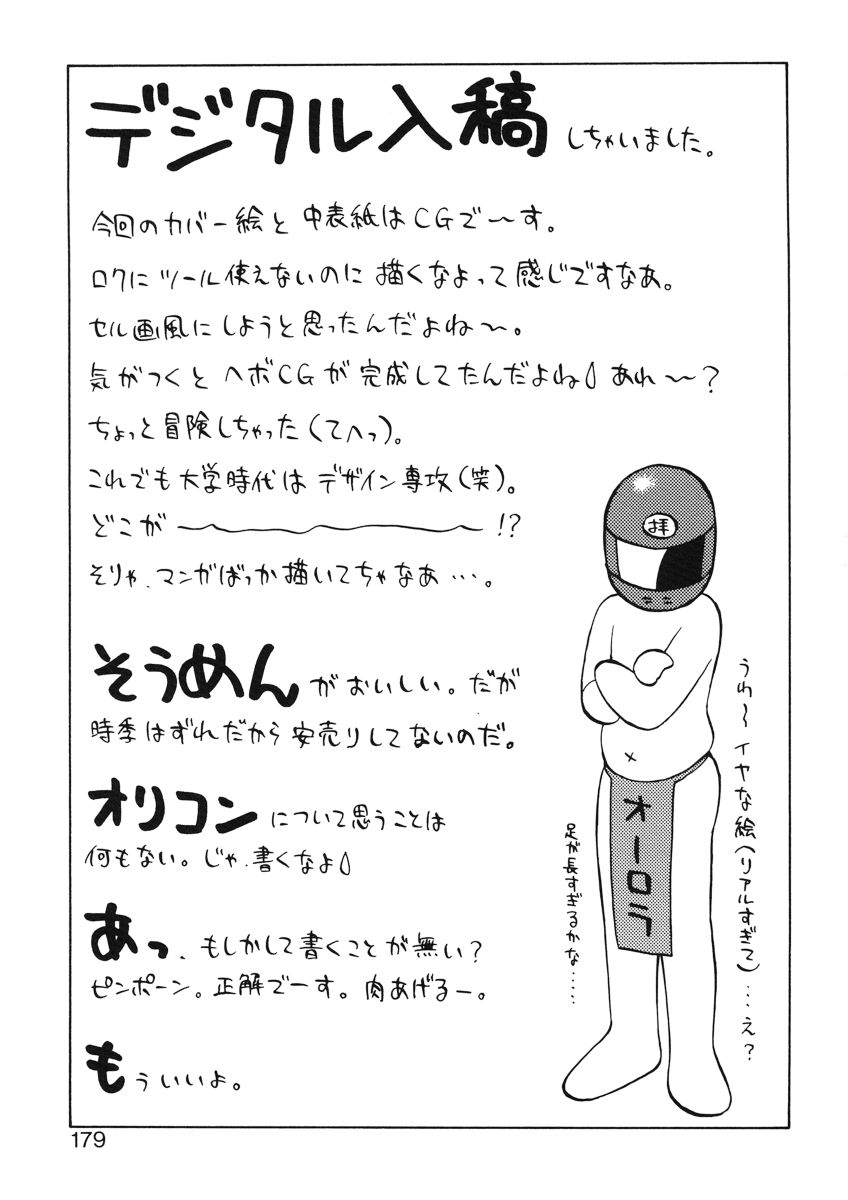 デジタル入稿しちゃいました。
今回のカバー絵と中表紙はCGで〜す。
ロクにツール使えないのに描くなよって感じですなあ。
セル画風にしようと思ったんだよね〜。
気がつくとヘボCGが完成してたんだよね あれ〜?
ちょっと冒険しちゃった(てへっ)。
これでも大学時代はデザイン専攻(笑)。
どこが〜!?
そりゃ、マンガばっか描いてちゃなあ…。
そうめんがおいしい。だが
時季はずれだから安売りしてないのだ。
オリコンについて思うことは
何もない。じゃ、書くなよ
あっ、もしかして書くことが無い?
ピンポーン。正解でーす。肉あげるー。
もういいよ。
拝
オーロラ
うわ〜イヤな絵(リアルすぎて)…え?
足が長すぎるかな……
179